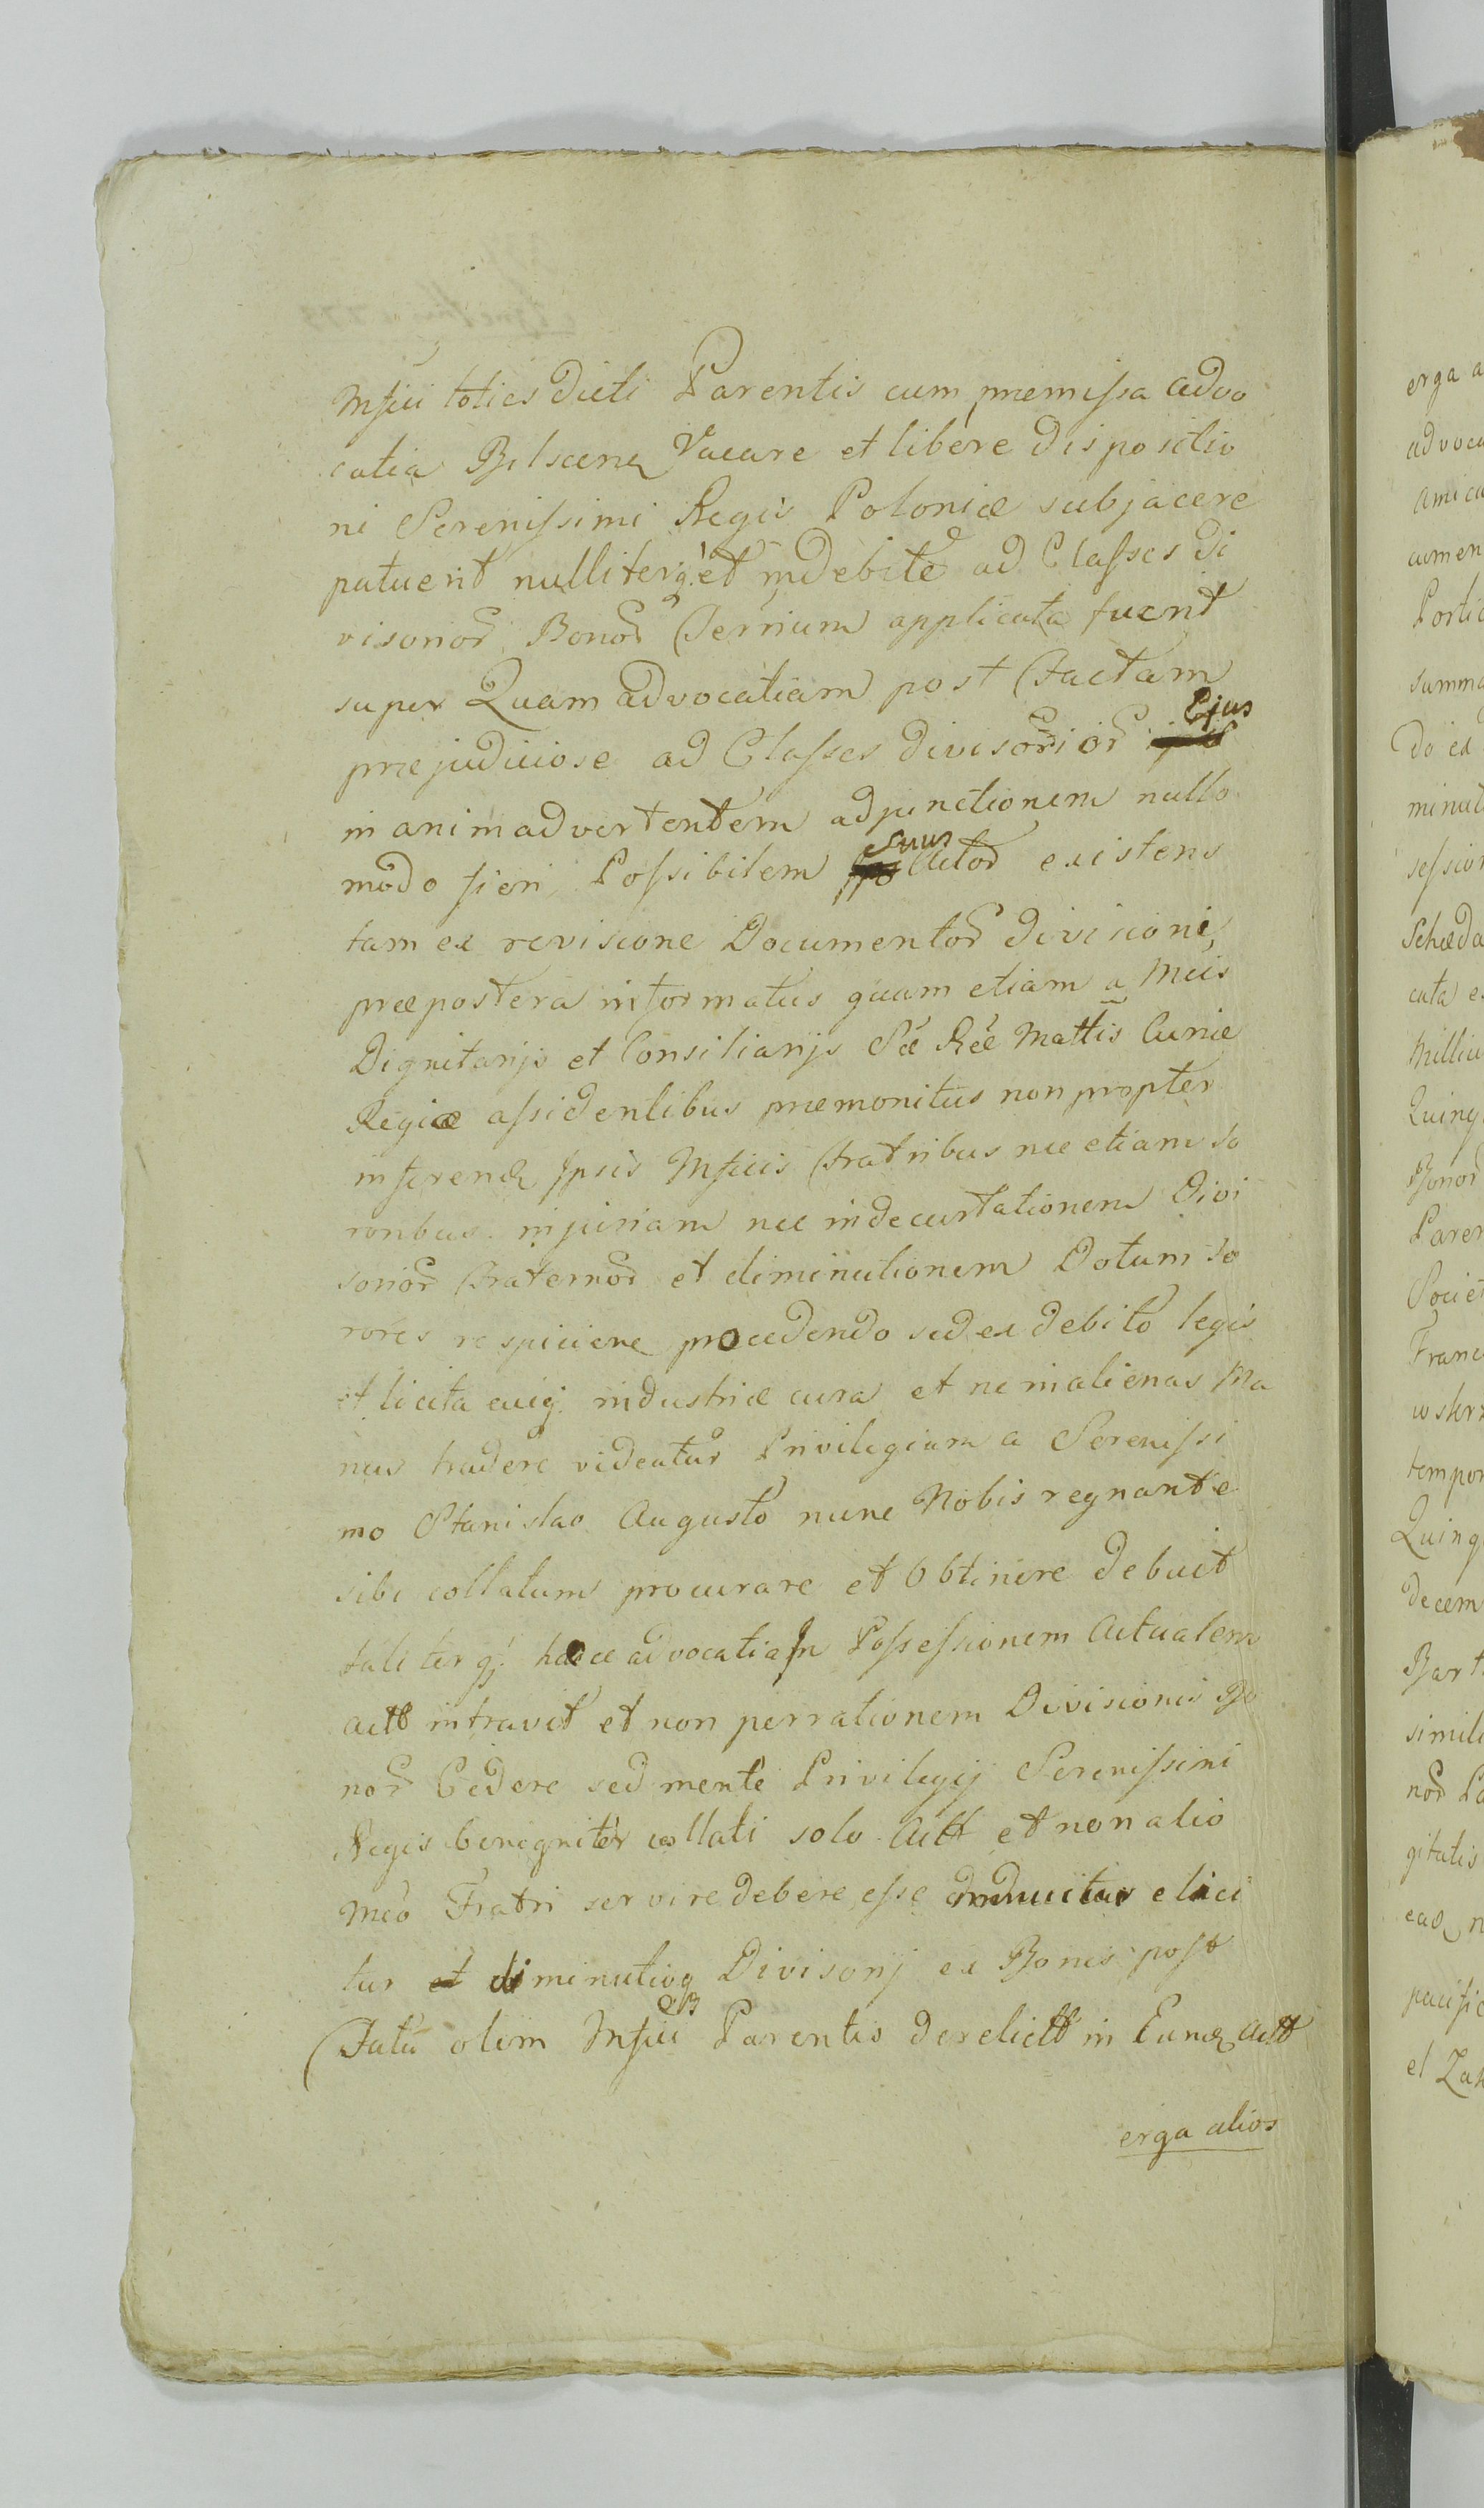 Mfici toties dicti Parentis cum præmissa advo
catia Bilscen Vacare et libere dispositio
ni Serenissimi Regis Poloniæ subjacere
patuerit nulliterq; et indebite ad Classes di
visonor Bonor Terrium applicata fuerit
super Quam advocatiam post Factam
præjudiciose ad Classes divisorior Ejus
in animadvertentem adjunctionem nullo
modo fieri Possibilem Actor existens
tam ex revisione Documentor divisioni
præpostera informatus quam etiam a Mcis
Dignitarijs et Consiliarijs Sæ Ræ Mattis Curiæ
Regiæ assidentibus præmonitus non propter
inferend Ipsis Mficis Fratribus nec etiam so
roribus injuriam nec indecurtationem Divi
sorior Fraternor et diminutionem Dotum so
rores respicien procedendo sed ex debito legis
et licita cuiq; industriæ cura et ne in alienas Ma
nus tradere videatur Privilegium a Serenissi
mo Stanislao Augusto nunc Nobis regnante
sibi collatum procurare et Obtinere debuit
taliterq; hacce advocatia In Possessionem Actualem
actt intravit et non per rationem Divisionis Bo
nor Cedere sed mente Privilegij Serenissimi
Regis benigniter collati solo Actt et non alio
Mco Fratri servire debere esse elici
tur et diminutioq Divisorij ex Bonis post
Fata olim Mfici Parentis derelictt in Eund Actt
erga alios
erga a
advoca
Amica
summa
Do ea
minut
session
Scheda
cata e
Millia
Quinq
Bonor
Paren
Societ
Franc
tempor
Quinq
decem
Bart
simili
nor Pa
gitatis
pacific
et Zak